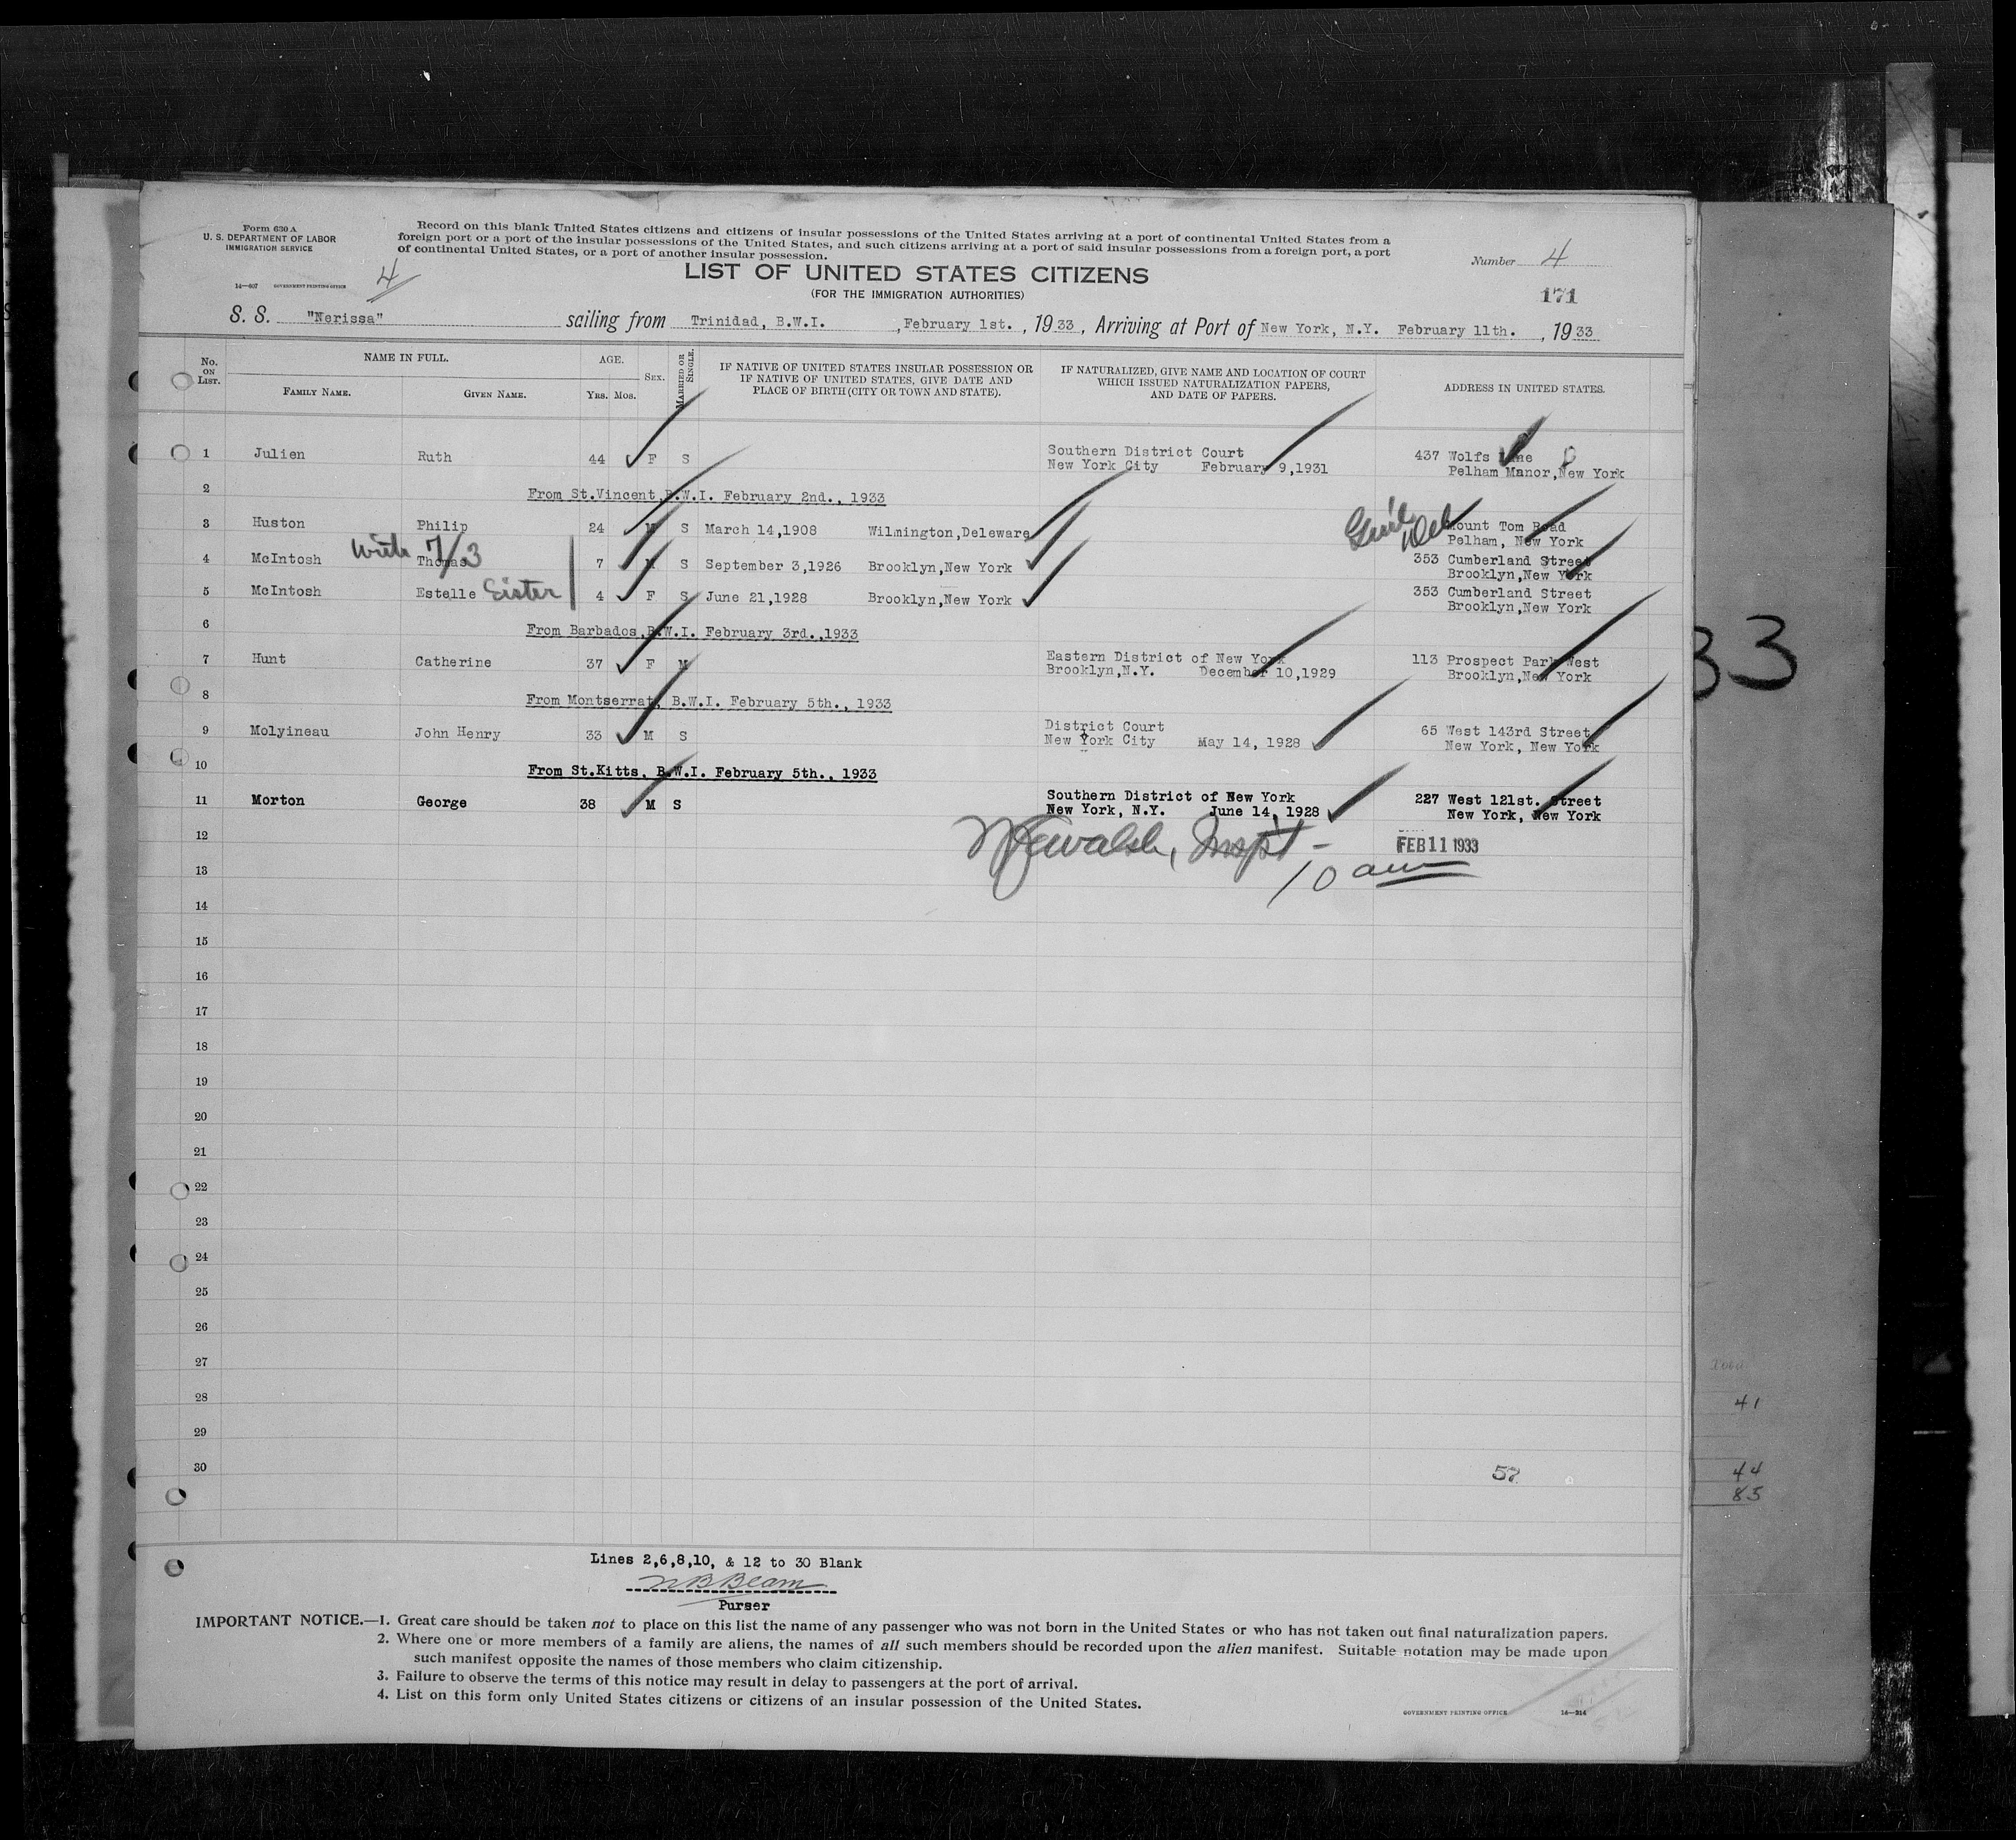 Form 630 A
U. S. DEPARTMENT OF LABOR
IMMIGRATION SERVICE
14—607 GOVERNMENT PRINTING OFFICE
4
Record on this blank United States citizens and citizens of insular possessions of the United States arriving at a port of continental United States from a
foreign port or a port of the insular possessions of the United States, and such citizens arriving at a port of said insular possessions from a foreign port, a port
of continental United States, or a port of another insular possession.
LIST OF UNITED STATES CITIZENS
(FOR THE IMMIGRATION AUTHORITIES)
Number 4
171
S. S. "Nerissa" sailing from Trinidad, B.W.I. , February 1st. , 1933 , Arriving at Port of New York, N.Y. February 11th. , 1933
No. ON LIST.
NAME IN FULL.
FAMILY NAME.
GIVEN NAME.
AGE.
YRS. MOS.
SEX.
MARRIED OR SINGLE.
IF NATIVE OF UNITED STATES INSULAR POSSESSION OR
IF NATIVE OF UNITED STATES, GIVE DATE AND
PLACE OF BIRTH (CITY OR TOWN AND STATE).
IF NATURALIZED, GIVE NAME AND LOCATION OF COURT
WHICH ISSUED NATURALIZATION PAPERS,
AND DATE OF PAPERS.
ADDRESS IN UNITED STATES.
1 Julien Ruth 44 F S Southern District Court 437 Wolfs Lane
New York City February 9,1931 Pelham Manor,New York
2 From St.Vincent,B.W.I. February 2nd., 1933
3 Huston Philip 24 M S March 14,1908 Wilmington,Deleware Mount Tom Road
Pelham, New York
with 7/3
4 McIntosh Thomas 7 M S September 3,1926 Brooklyn,New York 353 Cumberland Street
Brooklyn,New York
5 McIntosh Estelle Sister 4 F S June 21,1928 Brooklyn,New York 353 Cumberland Street
Brooklyn,New York
6 From Barbados,B.W.I. February 3rd.,1933
7 Hunt Catherine 37 F M Eastern District of New York 113 Prospect Park West
Brooklyn,N.Y. December 10,1929 Brooklyn,New York
8 From Montserrat, B.W.I. February 5th., 1933
9 Molyineau John Henry 33 M S District Court 65 West 143rd Street
New York City May 14, 1928 New York, New York
10 From St.Kitts, B.W.I. February 5th., 1933
11 Morton George 38 M S Southern District of New York 227 West 121st. Street
New York, N.Y. June 14, 1928 New York, New York
12 Walsh, Inspt - FEB 11 1933
13 10 am
14
15
16
17
18
19
20
21
22
23
24
25
26
27
28
29
30
57
33
41
44
85
Lines 2,6,8,10, & 12 to 30 Blank
Beam
Purser
IMPORTANT NOTICE.—1. Great care should be taken not to place on this list the name of any passenger who was not born in the United States or who has not taken out final naturalization papers.
2. Where one or more members of a family are aliens, the names of all such members should be recorded upon the alien manifest. Suitable notation may be made upon
such manifest opposite the names of those members who claim citizenship.
3. Failure to observe the terms of this notice may result in delay to passengers at the port of arrival.
4. List on this form only United States citizens or citizens of an insular possession of the United States.
GOVERNMENT PRINTING OFFICE 14—214